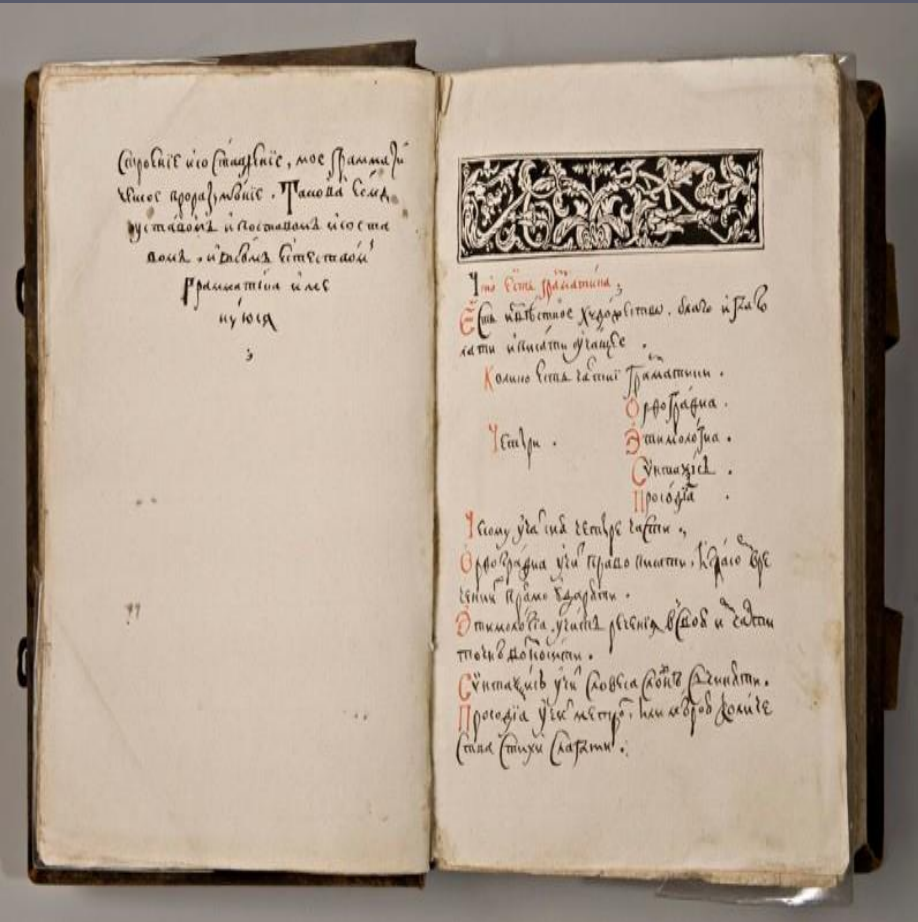 Строенїе и составленїе, мое граммати
ческое . Такова есмь
уставомъ и поставомъ и соста
вомъ . и всѣмъ естество
Грамматїка име
нуюся
Что есть граматика;
Есть извѣстное художество . благо и глаго
лати и писати учащее .
Колико есть части граматики .
Орѳографиа .
Четыри . Этимологиа .
Сѵнтаѯисъ .
Просодїа .
Чесому учатъ сия четыре части .
Орѳографиа учи право писати, и гласо в ре
чении прямо ударяти .
Этимологїа, учитъ реченїя в своя и части
точнѣ возносити .
Сѵнтаѯисъ учи словеса сложнѣ счиняти .
Просодїа учи метро, или мѣрою количе
ства стихи слагати .